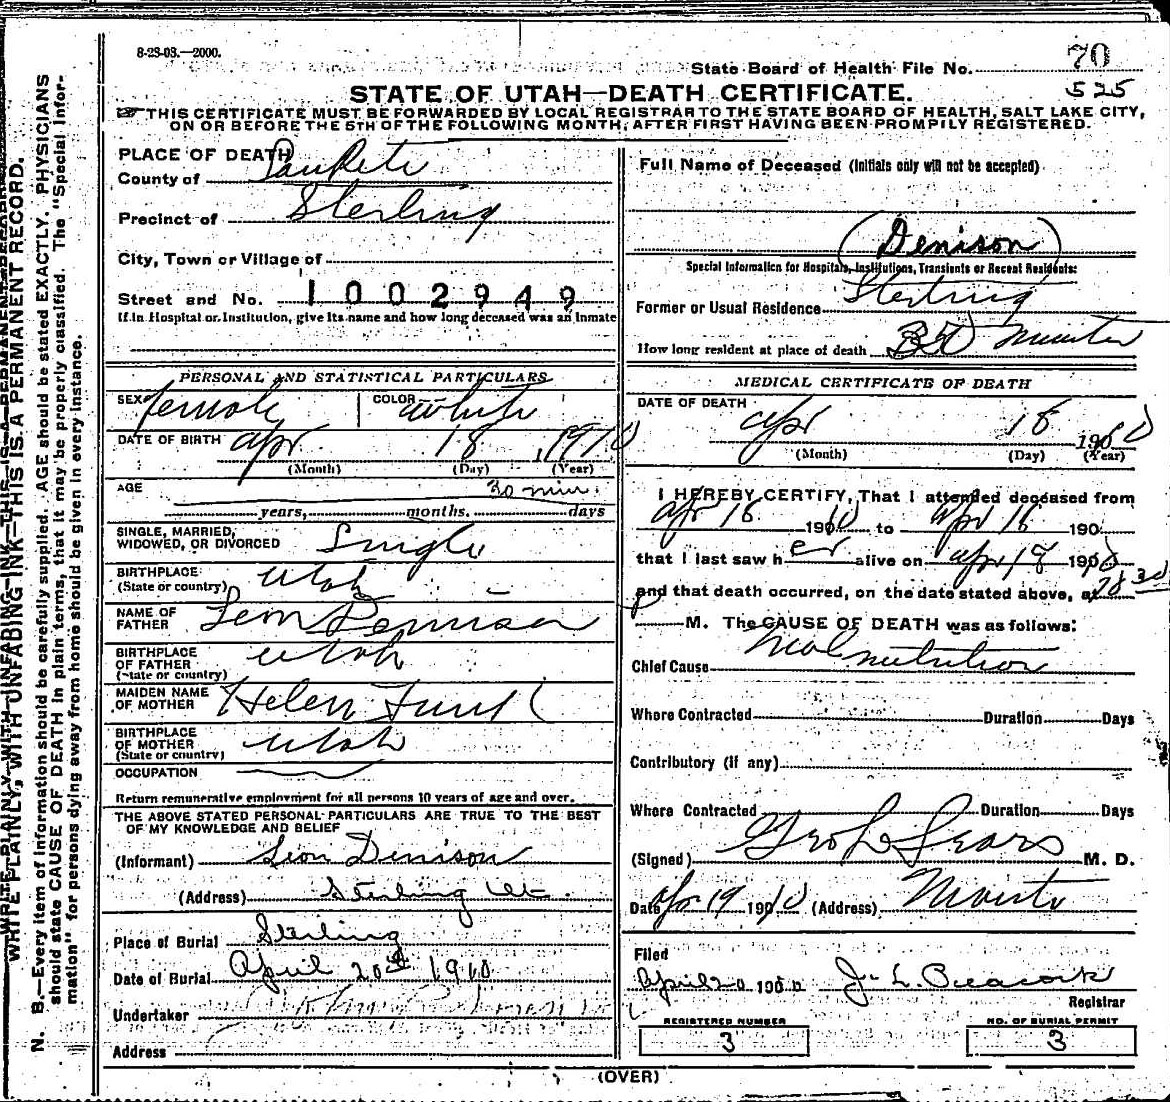 8-23-08.—2000.
State Board of Health File No. 70
525
STATE OF UTAH—DEATH CERTIFICATE.
THIS CERTIFICATE MUST BE FORWARDED BY LOCAL REGISTRAR TO THE STATE BOARD OF HEALTH, SALT LAKE CITY,
ON OR BEFORE THE 5TH OF THE FOLLOWING MONTH, AFTER FIRST HAVING BEEN PROMPILY REGISTERED.
WRITE PLAINLY, WITH UNFADING INK—THIS IS A PERMANENT RECORD.
N. B.—Every item of information should be carefully supplied. AGE should be stated EXACTLY. PHYSICIANS
should state CAUSE OF DEATH in plain terms, that it may be properly classified. The "Special Infor-
mation" for persons dying away from home should be given in every instance.
PLACE OF DEATH
County of SanPete
Precinct of Sterling
City, Town or Village of
Street and No. 1002949
If in Hospital or Institution, give its name and how long deceased was an inmate
PERSONAL AND STATISTICAL PARTICULARS
SEX female COLOR white
DATE OF BIRTH apr 18, 1910
(Month) (Day) (Year)
AGE 30 min.
years, months. days
SINGLE, MARRIED,
WIDOWED, OR DIVORCED Single
BIRTHPLACE
(State or country) Utah
NAME OF
FATHER Leon Dennison
BIRTHPLACE
OF FATHER
(State or country) Utah
MAIDEN NAME
OF MOTHER Helen Funk
BIRTHPLACE
OF MOTHER
(State or country) Utah
OCCUPATION
Return remunerative employment for all persons 10 years of age and over.
THE ABOVE STATED PERSONAL PARTICULARS ARE TRUE TO THE BEST
OF MY KNOWLEDGE AND BELIEF
(Informant) Leon Denison
(Address) Sterling Ut.
Place of Burial Sterling
Date of Burial April 20th 1910
Undertaker
Address
Full Name of Deceased (Initials only will not be accepted)
(Denison)
Special Information for Hospitals, Institutions, Transients or Recent Residents:
Former or Usual Residence Sterling
How long resident at place of death 30 minutes
MEDICAL CERTIFICATE OF DEATH
DATE OF DEATH
apr 18 1910
(Month) (Day) (Year)
I HEREBY CERTIFY, That I attended deceased from
apr 18 1910 to apr 18 190
that I last saw her alive on apr 18 1910
and that death occurred, on the date stated above, at 830
p M. The CAUSE OF DEATH was as follows:
Chief Cause Malnutrition
Where Contracted Duration Days
Contributory (if any)
Where Contracted Duration Days
(Signed) Geo L Sears M. D.
Date Apr 19 1910 (Address) Manti
Filed
April 20 1910 J. L. Peacock
Registrar
REGISTERED NUMBER
3
NO. OF BURIAL PERMIT
3
(OVER)